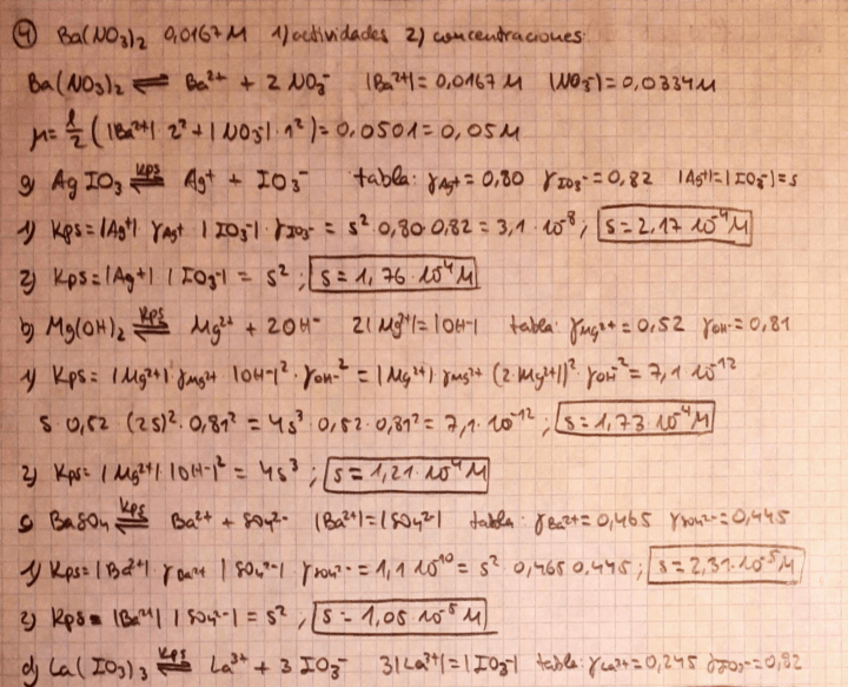 ④ Ba(NO₃)₂ 0,0167 M 1) actividades 2) concentraciones
Ba(NO₃)₂ ⇌ Ba²⁺ + 2 NO₃⁻ |Ba²⁺| = 0,0167 M |NO₃⁻| = 0,0334 M
μ = 1/2 (|Ba²⁺| · 2² + |NO₃⁻| · 1²) = 0,0501 = 0,05 M
a) AgIO₃ ⇌ Kps Ag⁺ + IO₃⁻ tabla: γAg⁺ = 0,80 γIO₃⁻ = 0,82 |Ag⁺| = |IO₃⁻| = s
1) Kps = |Ag⁺| γAg⁺ |IO₃⁻| · γIO₃⁻ = s² · 0,80 · 0,82 = 3,1 · 10⁻⁸ ; s = 2,17 · 10⁻⁴ M
2) Kps = |Ag⁺| |IO₃⁻| = s² ; s = 1,76 · 10⁻⁴ M
b) Mg(OH)₂ ⇌ Kps Mg²⁺ + 2OH⁻ 2|Mg²⁺| = |OH⁻| tabla: γMg²⁺ = 0,52 γOH⁻ = 0,81
1) Kps = |Mg²⁺| γMg²⁺ |OH⁻|² · γOH⁻² = |Mg²⁺| γMg²⁺ (2·Mg²⁺|)² · γOH⁻² = 7,1 · 10⁻¹²
s · 0,52 (2s)² · 0,81² = 4s³ · 0,52 · 0,81² = 7,1 · 10⁻¹² ; s = 1,73 · 10⁻⁴ M
2) Kps = |Mg²⁺| |OH⁻|² = 4s³ ; s = 1,21 · 10⁻⁴ M
c) BaSO₄ ⇌ Kps Ba²⁺ + SO₄²⁻ |Ba²⁺| = |SO₄²⁻| tabla: γBa²⁺ = 0,465 γSO₄²⁻ = 0,445
1) Kps = |Ba²⁺| · γBa²⁺ |SO₄²⁻| γSO₄²⁻ = 1,1 · 10⁻¹⁰ = s² · 0,465 · 0,445 ; s = 2,31 · 10⁻⁵ M
2) Kps = |Ba²⁺| |SO₄²⁻| = s² ; s = 1,05 · 10⁻⁵ M
d) La(IO₃)₃ ⇌ Kps La³⁺ + 3 IO₃⁻ 3|La³⁺| = |IO₃⁻| tabla: γLa³⁺ = 0,245 γIO₃⁻ = 0,82